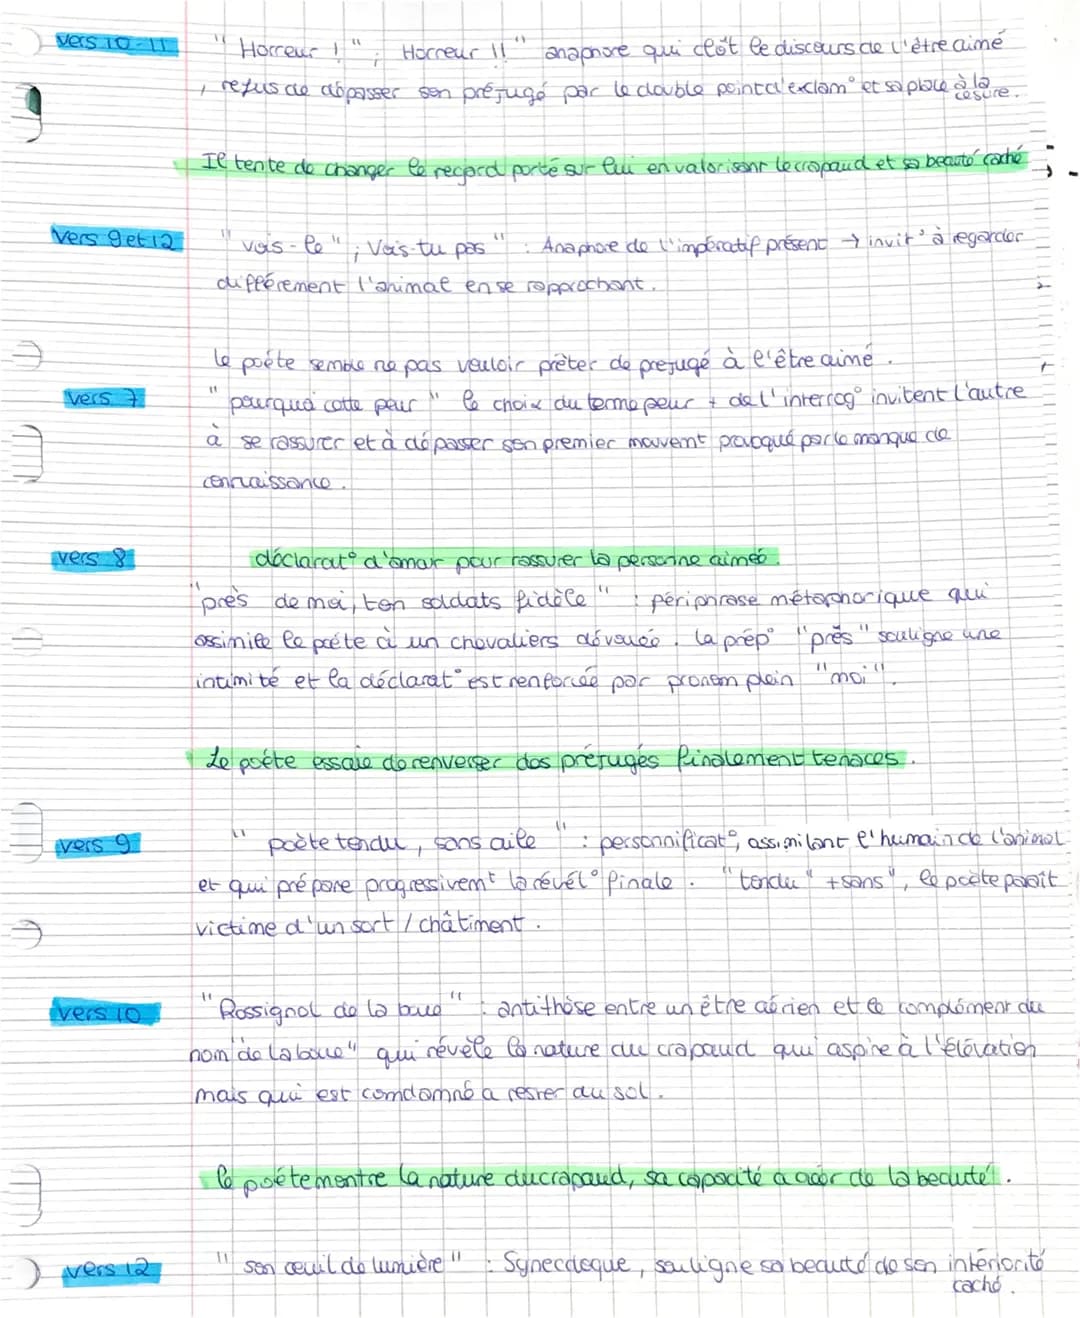 vers 10-11 "Horreur !" ; Horreur !!" anaphore qui clôt le discours de l'être aimé
, refus de dépasser son préjugé par le double point d'exclam° et sa place à la
césure.
Il tente de changer le regard porté sur lui en valorisant le crapaud et sa beauté caché
vers 9 et 12 "vois-le" ; Vois-tu pas" : Anaphore de l'impératif présent → invit° à regarder
différement l'animal en se rapprochant.
Le poète semble ne pas vouloir prêter de préjugé à l'être aimé.
vers 7 "pourquoi cette peur" le choix du terme peur + de l'interrog° invitent l'autre
à se rassurer et à dépasser son premier mouvemt provoqué par le manque de
connaissance.
vers 8 déclarat° d'amour pour rassurer la personne aimée.
"près de moi, ton soldats fidèle" : périphrase métaphorique qui
assimile le poète à un chevaliers dévouée. la prép° "près" souligne une
intimité et la déclarat° est renforcée par pronom plein "moi".
Le poète essaie de renverser des préjugés finalement tenaces.
vers 9 "poète tondu, sans aile" : personnificat°, assimilant l'humain de l'animal
et qui prépare progressivemt la révél° finale. "tondu" + sans", le poète paraît
victime d'un sort / châtiment.
vers 10 "Rossignol de la boue" : antithèse entre un être aérien et le complément du
nom "de la boue" qui révèle la nature du crapaud qui aspire à l'élévation
mais qui est comdamné a rester au sol.
le poète montre la nature du crapaud, sa capacité a créer de la beauté.
vers 12 "son oeuil de lumière" : Synecdoque, souligne sa beauté de son intériorité
caché.